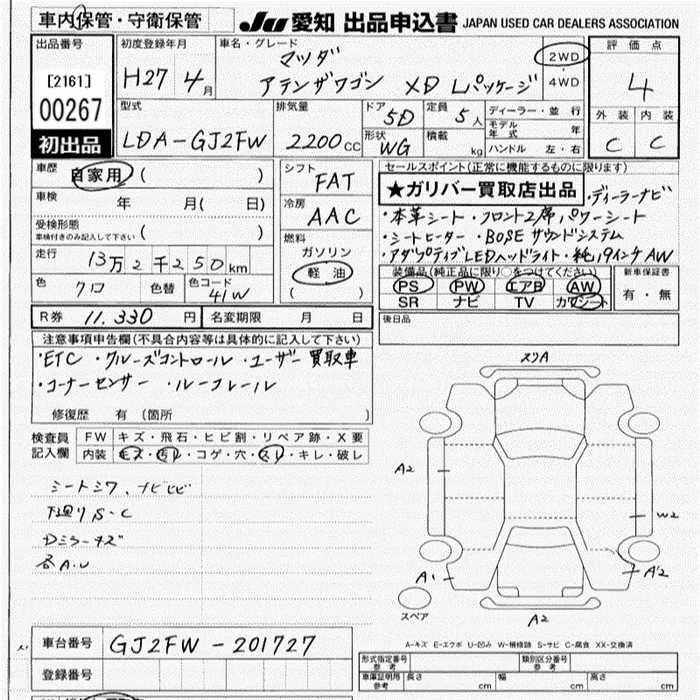 車内保管・守衛保管 JU 愛知 出品申込書 JAPAN USED CAR DEALERS ASSOCIATION
出品番号 初度登録年月 車名・グレード 評価点
[2161] H27年 4月 マツダ 2WD
00267 アテンザワゴン XD Lパッケージ 4WD 4
初出品 型式 排気量 ドア 5D 定員 5人 ディーラー・並行 外装 内装
LDA-GJ2FW 2200cc 形状 WG 積載 kg モデル年式 年 C C
ハンドル 左・右
車歴 自家用 ( ) シフト FAT セールスポイント(正常に機能するものに限ります)
車検 年 月( 日) 冷房 AAC ★ガリバー買取店出品 ・ディーラーナビ
受検形態 ( ) ・本革シート・フロント2席パワーシート
車検付きのみ記入して下さい 燃料 ・シートヒーター・BOSEサウンドシステム
走行 13万2千250km ガソリン ・アダプティブLEDヘッドライト・純19インチAW
色 クロ 色替 色コード 41W 軽油 装備品(純正品に限り○をつけてください) 新車保証書
( ) PS PW エアB AW 有・無
SR ナビ TV カワシート
R券 11.330円 名変期限 月 日 後日品
注意事項申告欄(不具合内容等は具体的に記入して下さい)
・ETC ・クルーズコントロール ・ユーザー買取車
・コーナーセンサー ・ルーフレール
修復歴 有 (箇所 )
検査員記入欄 FW キズ・飛石・ヒビ割・リペア跡・X要
内装 キズ・汚レ・コゲ・穴・スレ・キレ・破レ
シートシワ、ナビヒビ
下廻りS-C
Dミラーキズ
各A.U
スリA
A2
W2
A1
A2
A2
スペア
A-キズ E-エクボ U-凹み W-補修跡 S-サビ C-腐食 XX-交換済
車台番号 GJ2FW-201727
登録番号
形式指定番号 参考 類別区分番号 参考
車庫証明用 参考 長さ cm 幅 cm 高さ cm